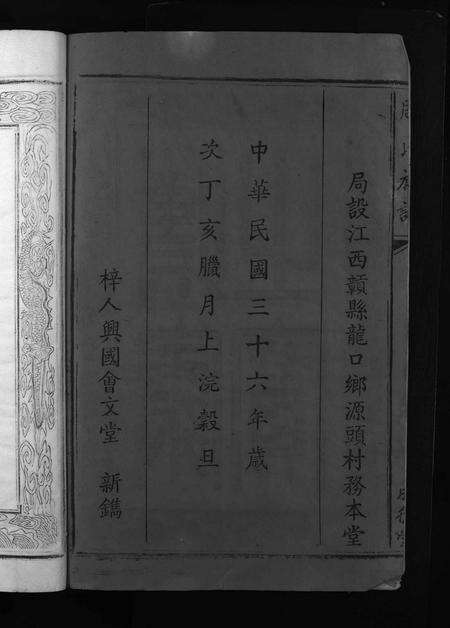 局設江西贛縣龍口鄉源頭村務本堂
中華民國三十六年歲
次丁亥臘月上浣穀旦
梓人興國會文堂 新鐫